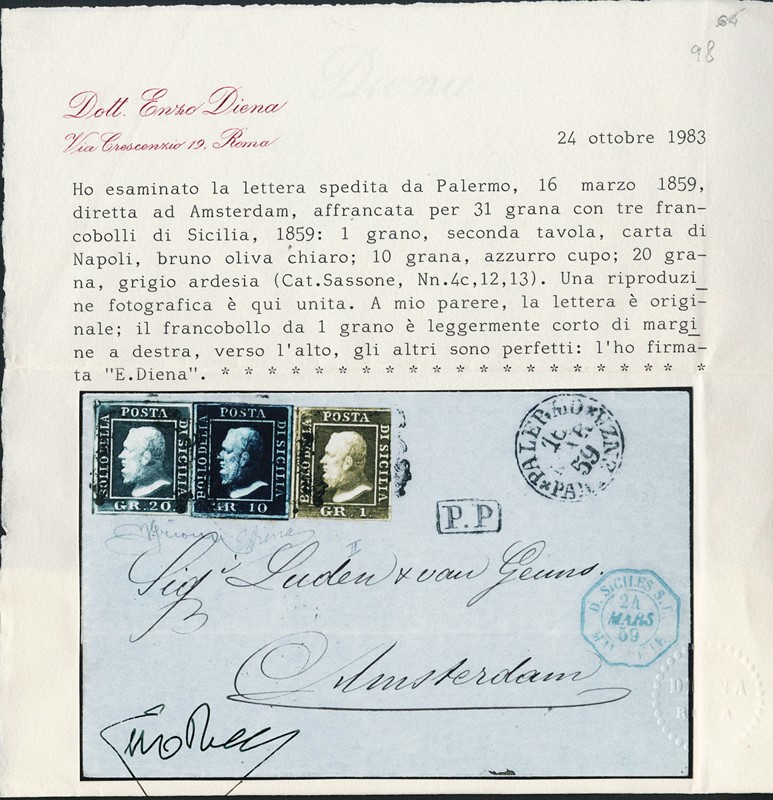 64
98
Diena
Dott. Enzo Diena
Via Crescenzio 19, Roma
24 ottobre 1983
Ho esaminato la lettera spedita da Palermo, 16 marzo 1859,
diretta ad Amsterdam, affrancata per 31 grana con tre fran-
cobolli di Sicilia, 1859: 1 grano, seconda tavola, carta di
Napoli, bruno oliva chiaro; 10 grana, azzurro cupo; 20 gra-
na, grigio ardesia (Cat.Sassone, Nn.4c,12,13). Una riproduzi
ne fotografica è qui unita. A mio parere, la lettera è origi-
nale; il francobollo da 1 grano è leggermente corto di margi
ne a destra, verso l'alto, gli altri sono perfetti: l'ho firma-
ta "E.Diena". * * * * * * * * * * * * * * * * * * * *
BOLLO DELLA POSTA DI SICILIA
GR.20
BOLLO DELLA POSTA DI SICILIA
GR 10
BOLLO DELLA POSTA DI SICILIA
GR 1
PALERMO
16
59
P.P
II
Sigri Luden & van Geuns.
Amsterdam
D. SICILES S.
24
MARS
59
DIENA